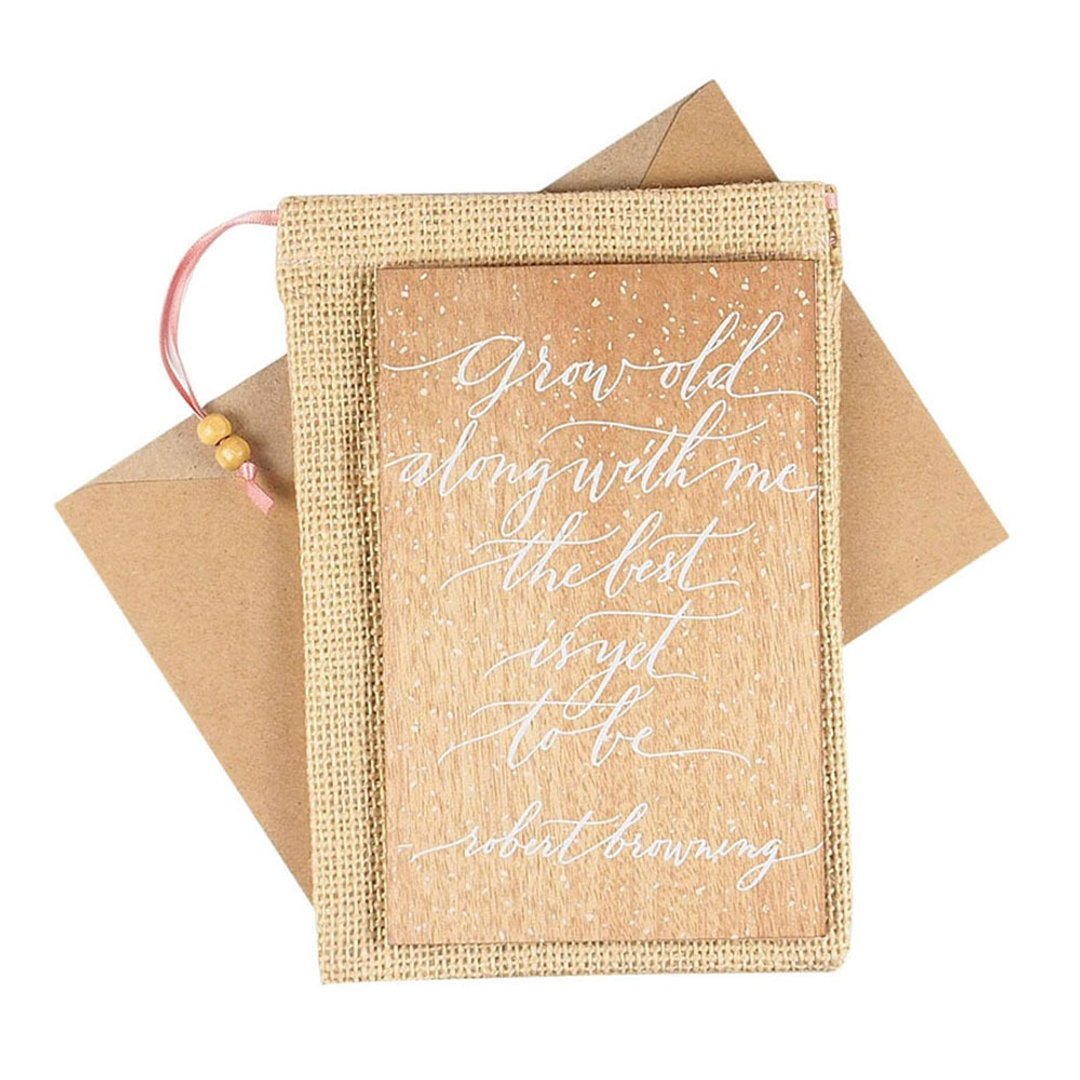 Grow old
along with me,
the best
is yet
to be
- robert browning